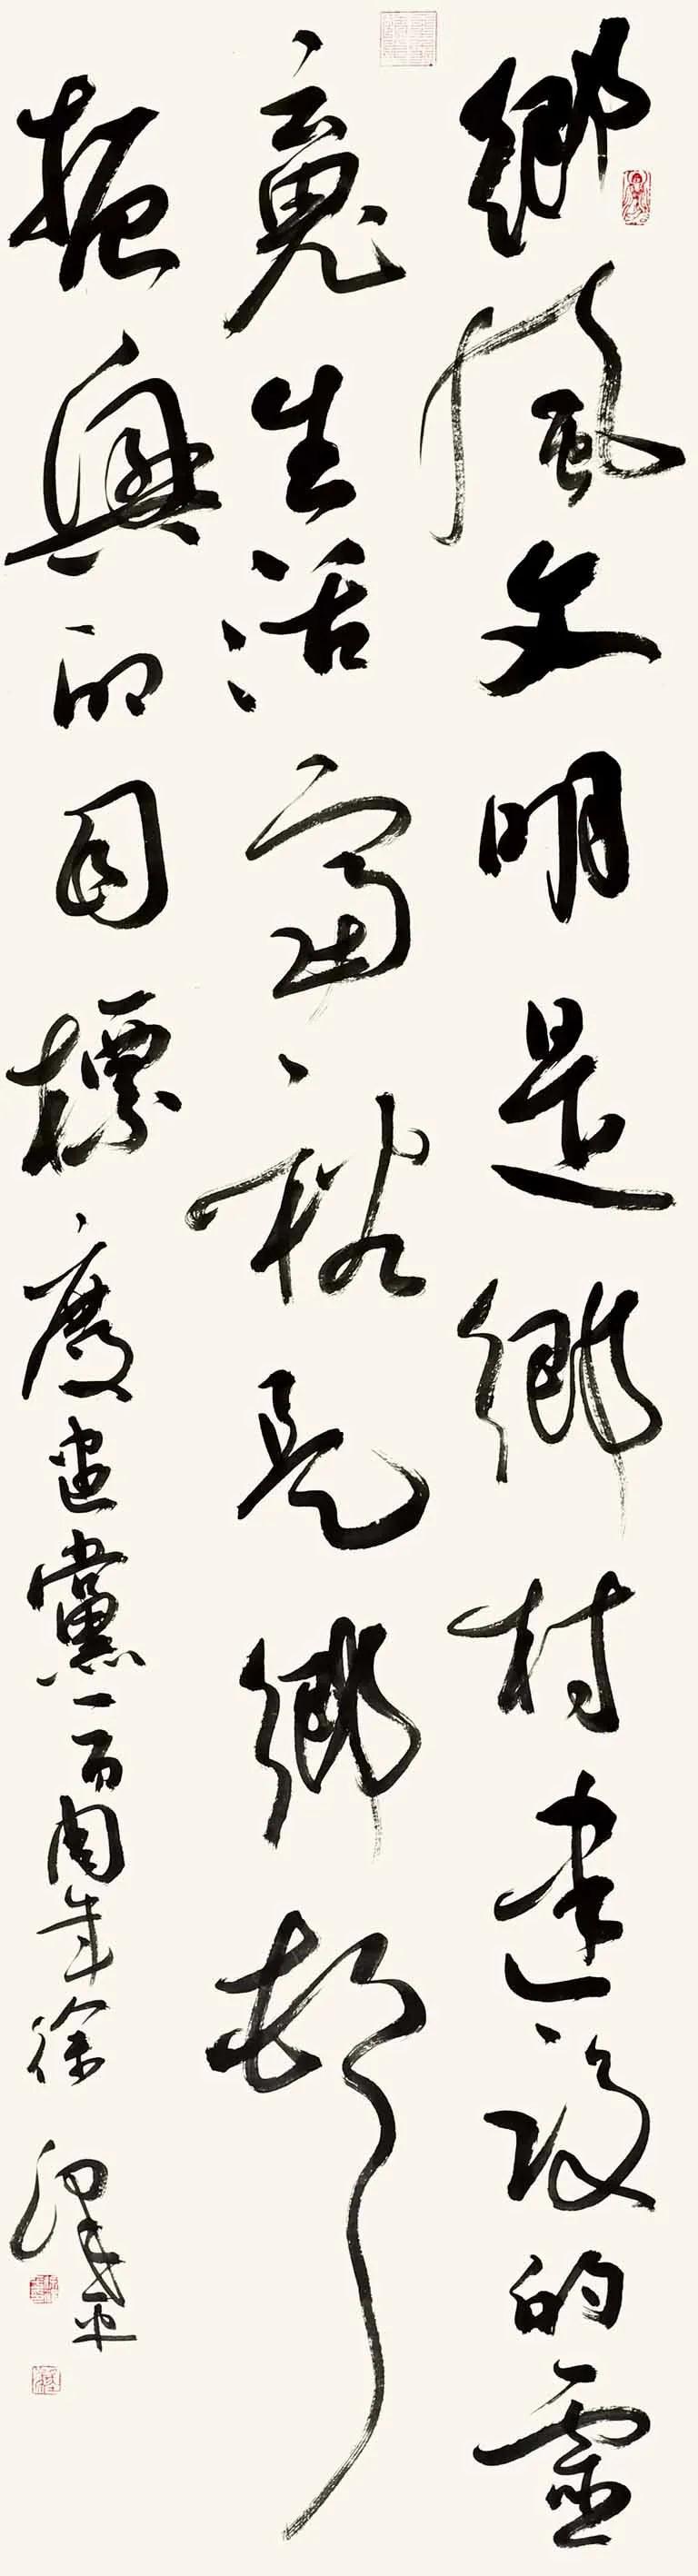 鄉風文明是鄉村建設的靈
魂生活富裕是鄉邨
振興的目標慶建黨一百周年徐